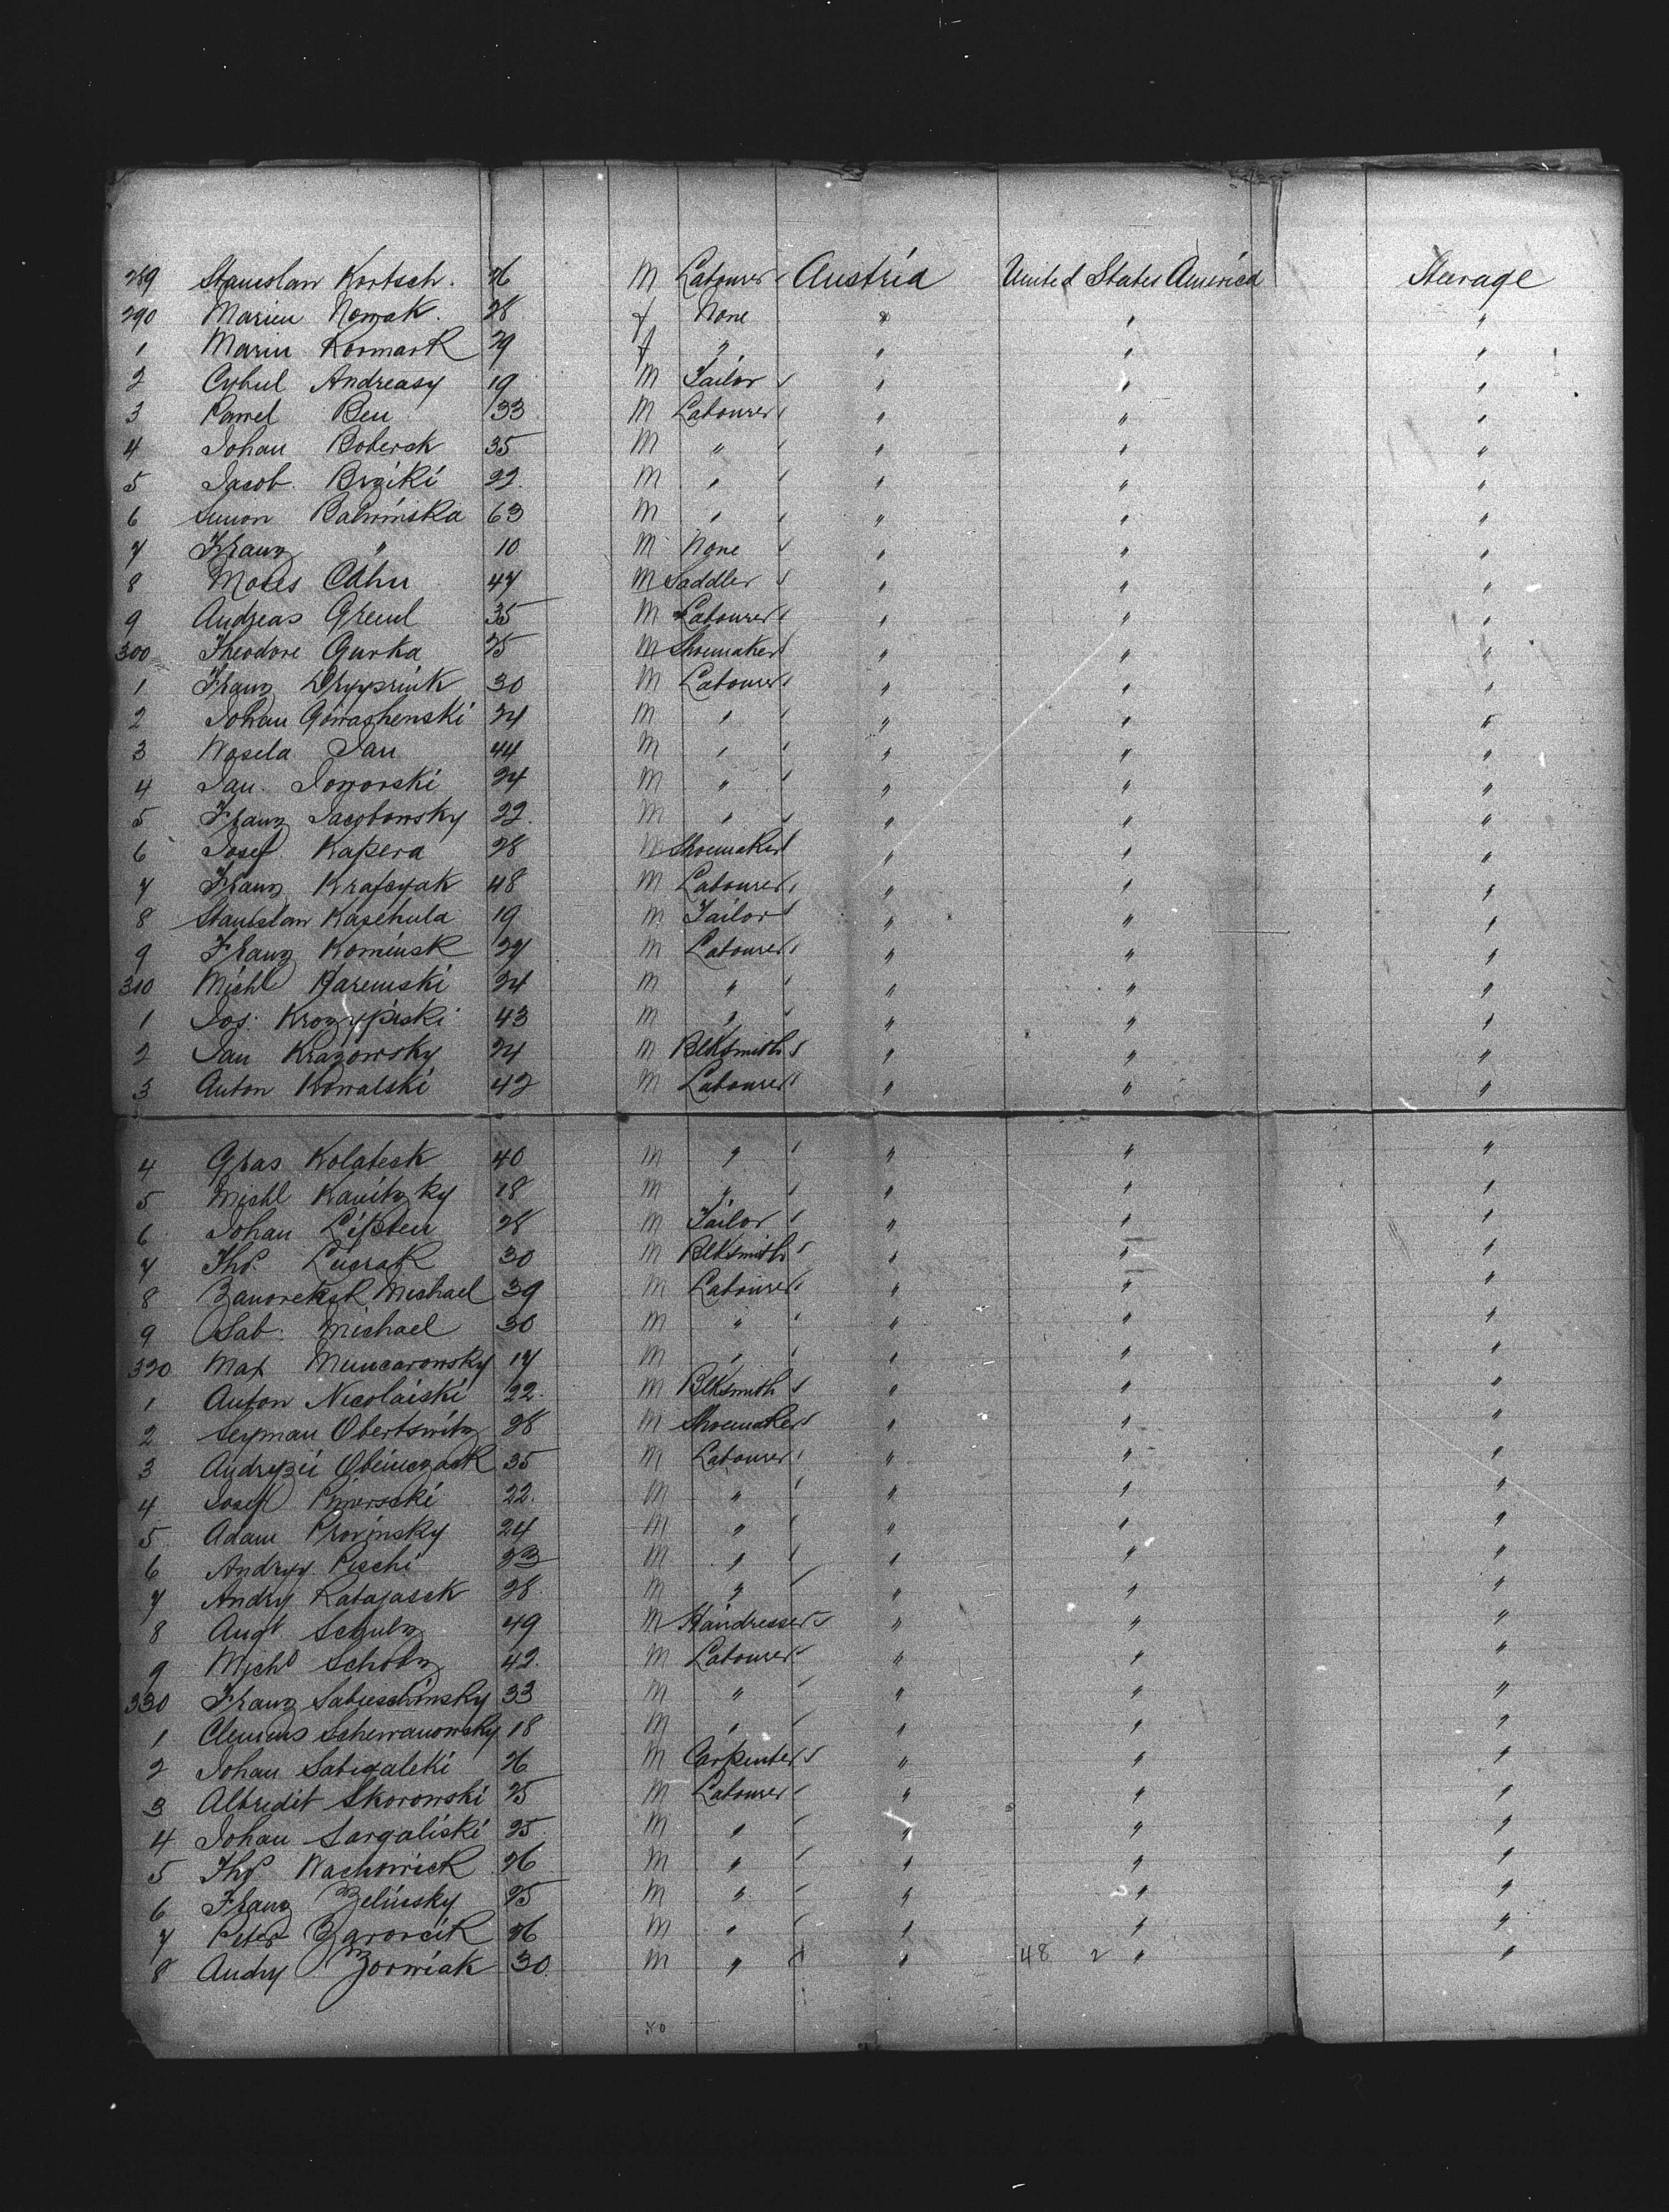 289 Stanislaw Kortsch. 26 M Labourer Austria United States America Steerage
290 Marien Nowak. 28 f None " " "
1 Marin Kormark 29 f " " " "
2 Cybul Andreasy 19 M Tailor " " "
3 Pawel Beu 33 M Labourer " " "
4 Johan Bobersk 35 M " " " "
5 Jacob. Brziki 22. M " " " "
6 Simon Balwinska 63 M " " " "
7 Franz " 10 M None " " "
8 Moses Cahn 47 M Saddler " " "
9 Andreas Greul 35 M Labourer " " "
300 Theodore Gurka 25 M Shoemaker " " "
1 Franz 30 M Labourer " " "
2 Johan Gowashenski 24 M " " " "
3 Wosela Jan 44 M " " " "
4 Jan. Joworski 24 M " " " "
5 Franz Jacobowsky 22. M " " " "
6 Josef. Kapera 28 M Shoemaker " " "
7 Franz Krafcyak 48 M Labourer " " "
8 Stanislaw Kasehula 19 M Tailor " " "
9 Franz Kominsk 29 M Labourer " " "
310 Michl Haremski 24 M " " " "
1 Jos. Krozypiski 43 M " " " "
2 Jan Krazowsky 24 M Blksmith " " "
3 Anton Kowalski 42 M Labourer " " "
4 Gras Kolatesk 40 M " " " "
5 Michl Kanitzky 18 M " " " "
6 Johan Lipsten 28 M Tailor " " "
7 Thos. Lusrak 30 M Blksmith " " "
8 Michael 39 M Labourer " " "
9 Sab. Michael 30 M " " " "
320 Max Muncarowsky 17 M " " " "
1 Anton Nicolaiski 22. M Blksmith " " "
2 Seyman Obertswitz 28 M Shoemaker " " "
3 Andryzii Obeinczack 35 M Labourer " " "
4 Josef 22. M " " " "
5. Adam Provinsky 24 M " " " "
6 Andryy. Pischi 23 M " " " "
7 Andry Ratajasck 28. M " " " "
8 Augt Schulz 49 M Hairdresser " " "
9 Michl Scholz 42. M Labourer " " "
330 Franz Sabieschinsky 33 M " " " "
1 Clemens Schewanowsky 18 M " " " "
2 Johan Sabigalski 26 M Carpenter " " "
3 Albredit Skorowski 25 M Labourer " " "
4 Johan Sargaliski 25. M " " " "
5 Thos Wachowick 26 M " " " "
6 Franz Zelinsky 25 M " " " "
7 Peter Zarorcik 26 M " " " "
8 Andry Zorwiak 30. M " " 48 2 " "
50